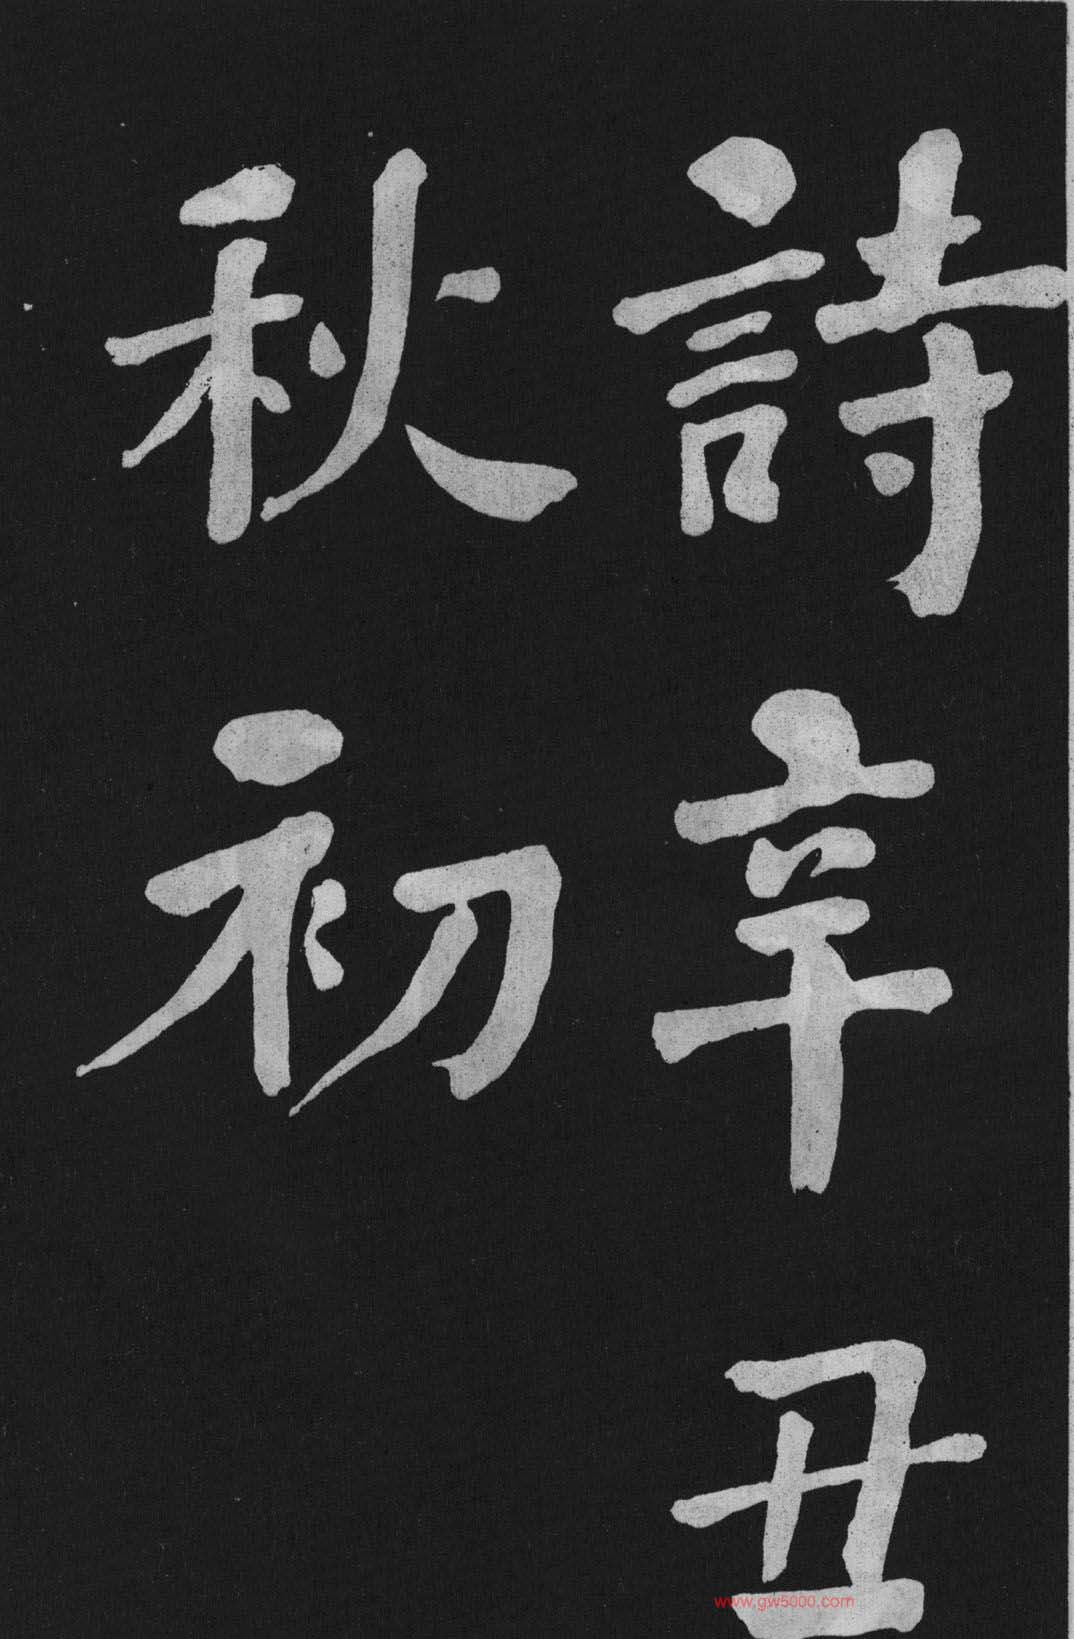 詩辛丑
秋初
www.gw5000.com